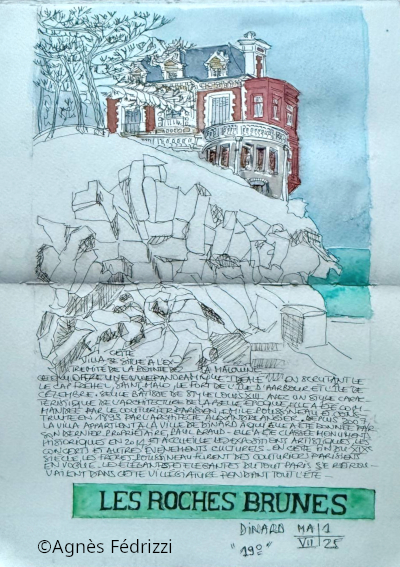 CETTE
VILLA SE SITUE A L'EX
TREMITE DE LA POINTE DE LA MALOUINE
CE QUI OFFRE UNE VUE PANORAMIQUE IDEALE EN SCRUTANT LE
LE CAP FREHEL, SAINT MALO LE FORT DE L'ILE D'HARBOUR ET L'ILE DE
CEZEMBRE. ELLE BATISSE DE STYLE LOUIS XIII AVEC UN STYLE CARA-
TERISTIQUE DE L'ARCHITECTURE DE LA BELLE EPOQUE, ELLE A ETE COM-
MANDEE PAR LE COUTURIER PARISIEN EMILE POUSSINEAU ET CONS-
TRUITE EN 1893 PAR L'ARCHITECTE ALEXANDRE ANGIER. DEPUIS 2007
LA VILLA APPARTIENT A LA VILLE DE DINARD A QUI ELLE A ETE DONNEE PAR
SON DERNIER PROPRIETAIRE, PAUL BRAUD. ELLE A ETE CLASSEE MONUMENTS
HISTORIQUES EN 2014 ET ACCUEILLE DES EXPOSITIONS ARTISTIQUES
CONCERTS ET AUTRES EVENEMENTS CULTURELS. EN CETTE FIN DU XIX°
SIECLE LES FRERES POUSSINEAU FURENT DES COUTURIERS PARISIENS
EN VOGUE. LES ELEGANTS ET ELEGANTES DU TOUT PARIS SE RETROU-
VAIENT DANS CETTE VILLEGIATURE PENDANT TOUT L'ETE
LES ROCHES BRUNES
DINARD MA/1
"19°" VII/25
©Agnès Fédrizzi